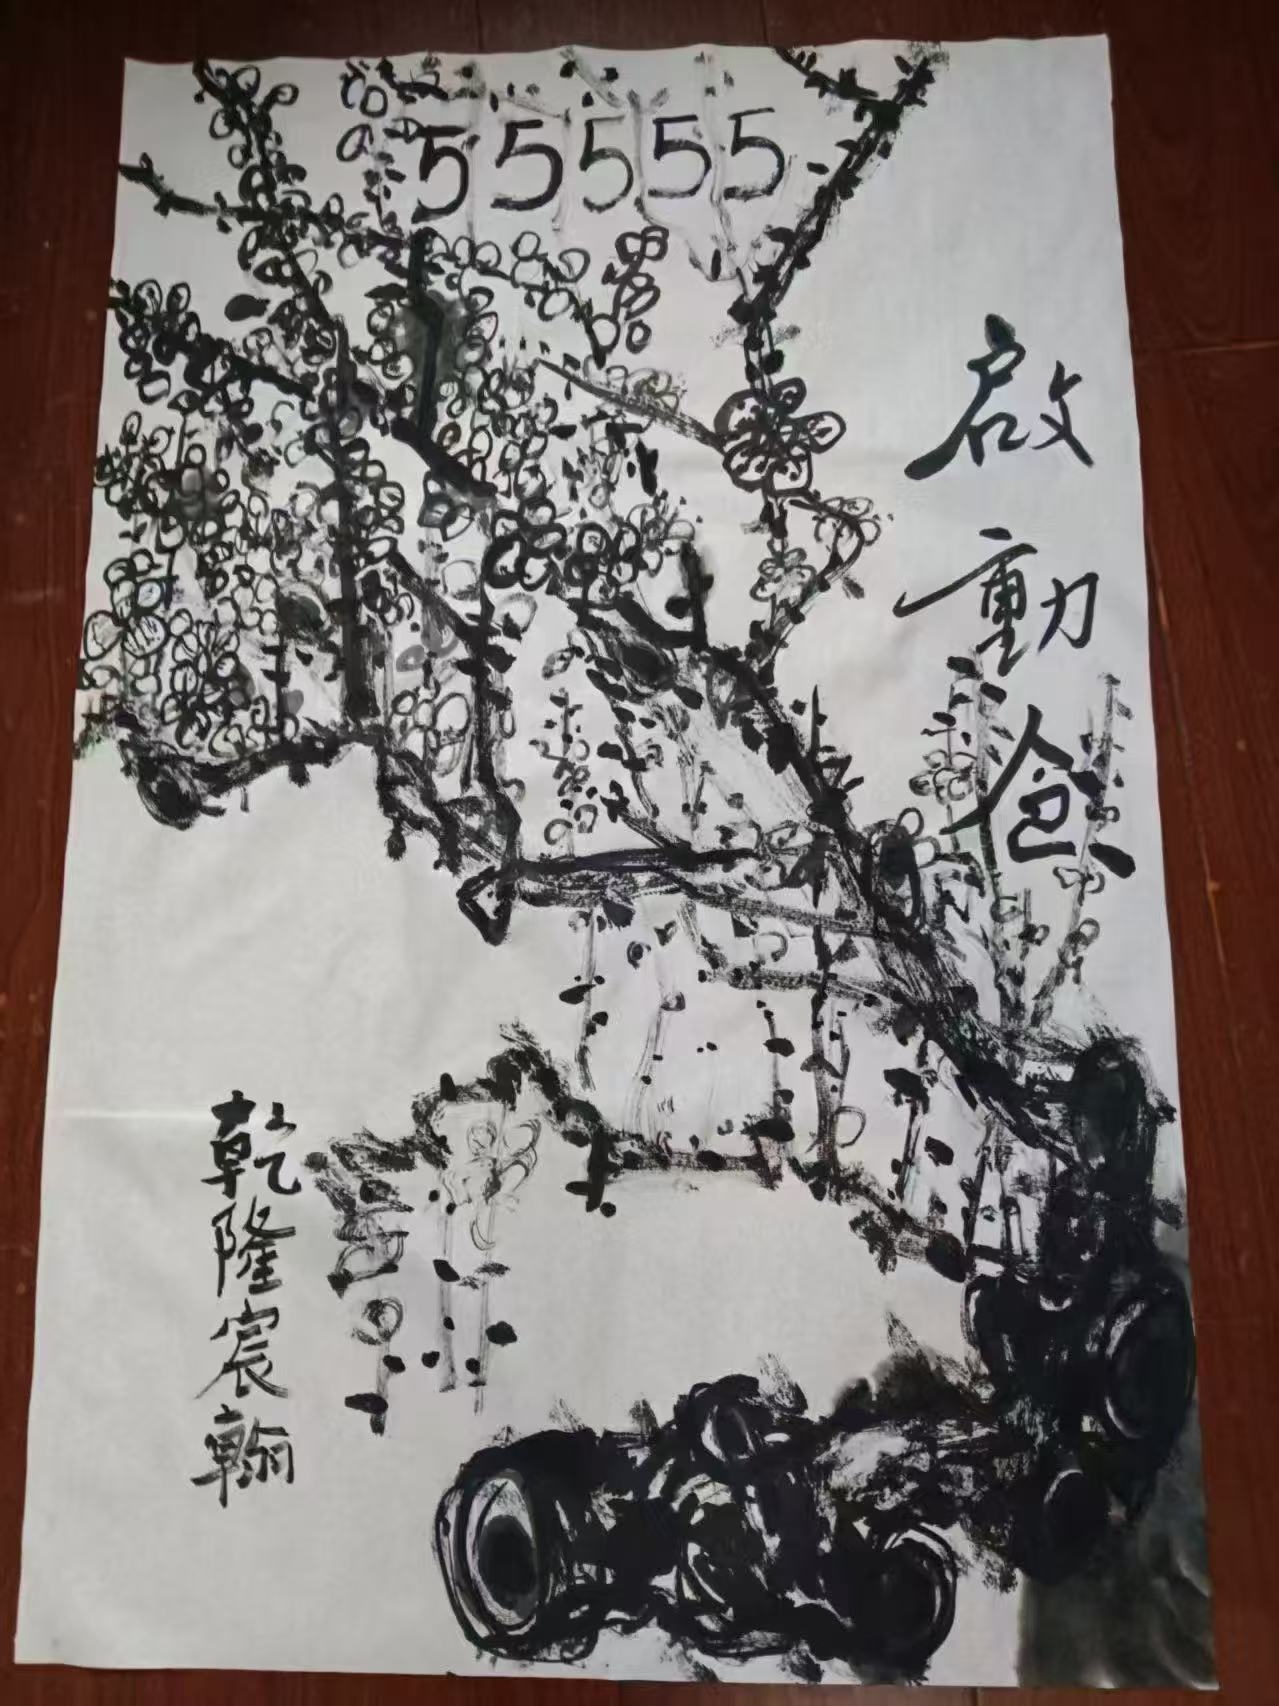 55555
啟動倉
乾隆宸翰